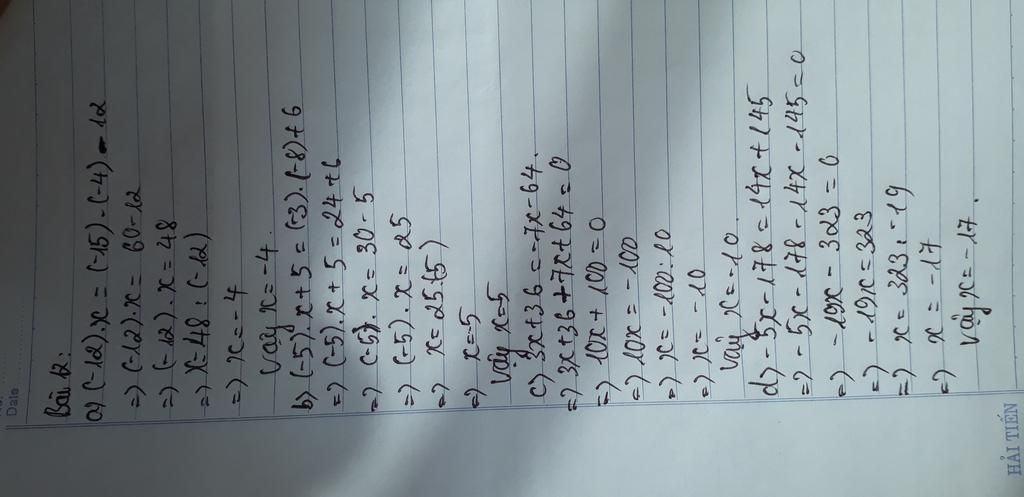 Date
Bài 12:
a) (-12).x = (-15).(-4) - 12
=> (-12).x = 60-12
=> (-12).x = 48
=> x = 48 : (-12)
=> x = -4
Vậy x = -4.
b) (-5).x + 5 = (-3).(-8) + 6
=> (-5).x + 5 = 24 + 6
=> (-5).x = 30 - 5
=> (-5).x = 25
=> x = 25:(-5)
=> x = -5
Vậy x = 5
c) 3x + 36 = -7x - 64.
=> 3x + 36 + 7x + 64 = 0
=> 10x + 100 = 0
=> 10x = -100
=> x = -100:10
=> x = -10
Vậy x = -10.
d) -5x - 178 = 14x + 145
=> -5x - 178 - 14x - 145 = 0
=> -19x - 323 = 0
=> -19x = 323
=> x = 323 : -19
=> x = -17
Vậy x = -17.
HẢI TIẾN